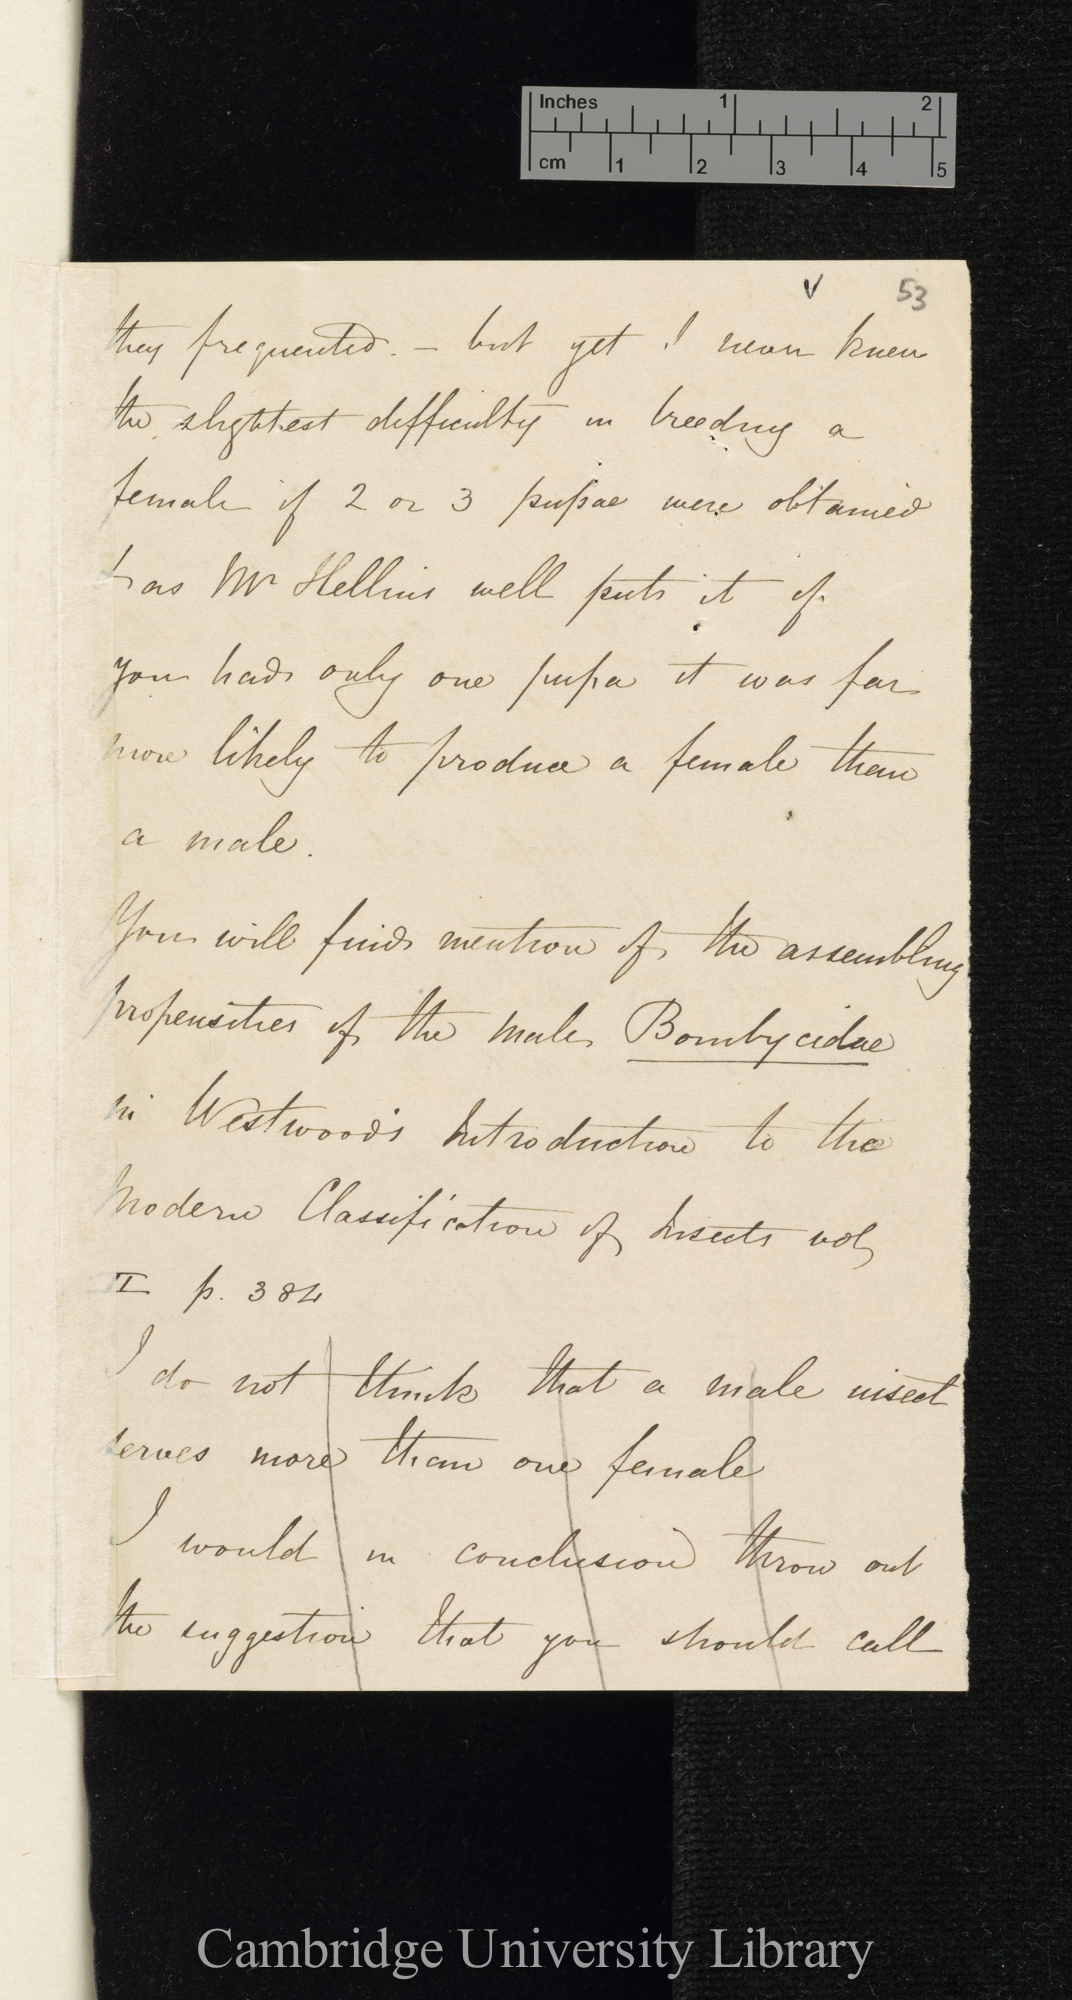 Inches 1 2
cm 1 2 3 4 5
v 53
they frequented. – but yet I never knew
the slightest difficulty in breeding a
female if 2 or 3 pupae were obtained
& as Mr Hellins well puts it if
you had only one pupa it was far
more likely to produce a female than
a male.
You will find mention of the assembling
propensities of the male Bombycidae
in Westwood's Introduction to the
Modern Classification of Insects vol
II p. 384
I do not think that a male insect
serves more than one female
I would in conclusion throw out
the suggestion that you should call
Cambridge University Library